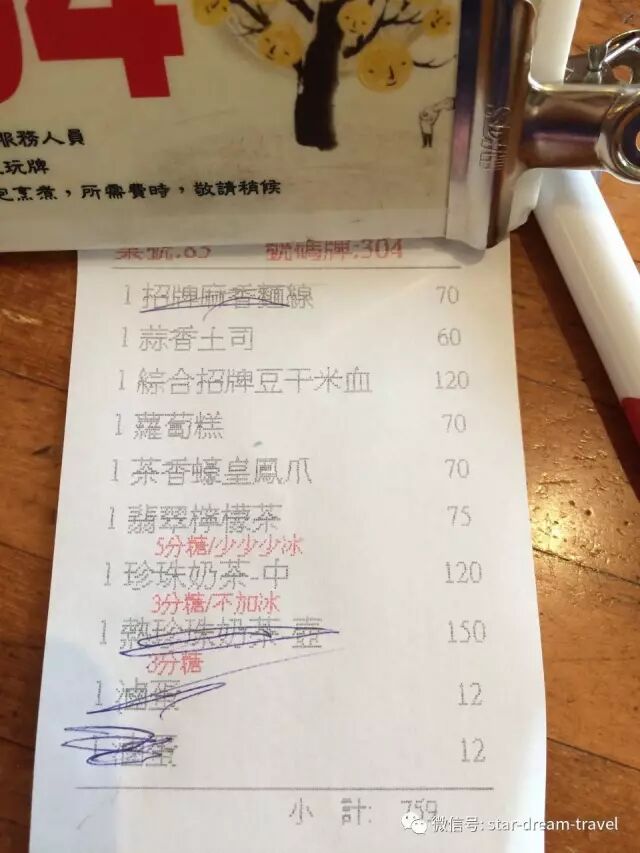 04
服務人員
玩牌
包烹煮，所需費時，敬請稍候
桌號:65 號碼牌:304
1 招牌麻香麵線 70
1 蒜香土司 60
1 綜合招牌豆干米血 120
1 蘿蔔糕 70
1 茶香蠔皇鳳爪 70
1 翡翠檸檬茶 75
5分糖/少少少冰
1 珍珠奶茶-中 120
3分糖/不加冰
1 熱珍珠奶茶-壺 150
3分糖
1 滷蛋 12
1 滷蛋 12
小 計: 759
微信号: star-dream-travel